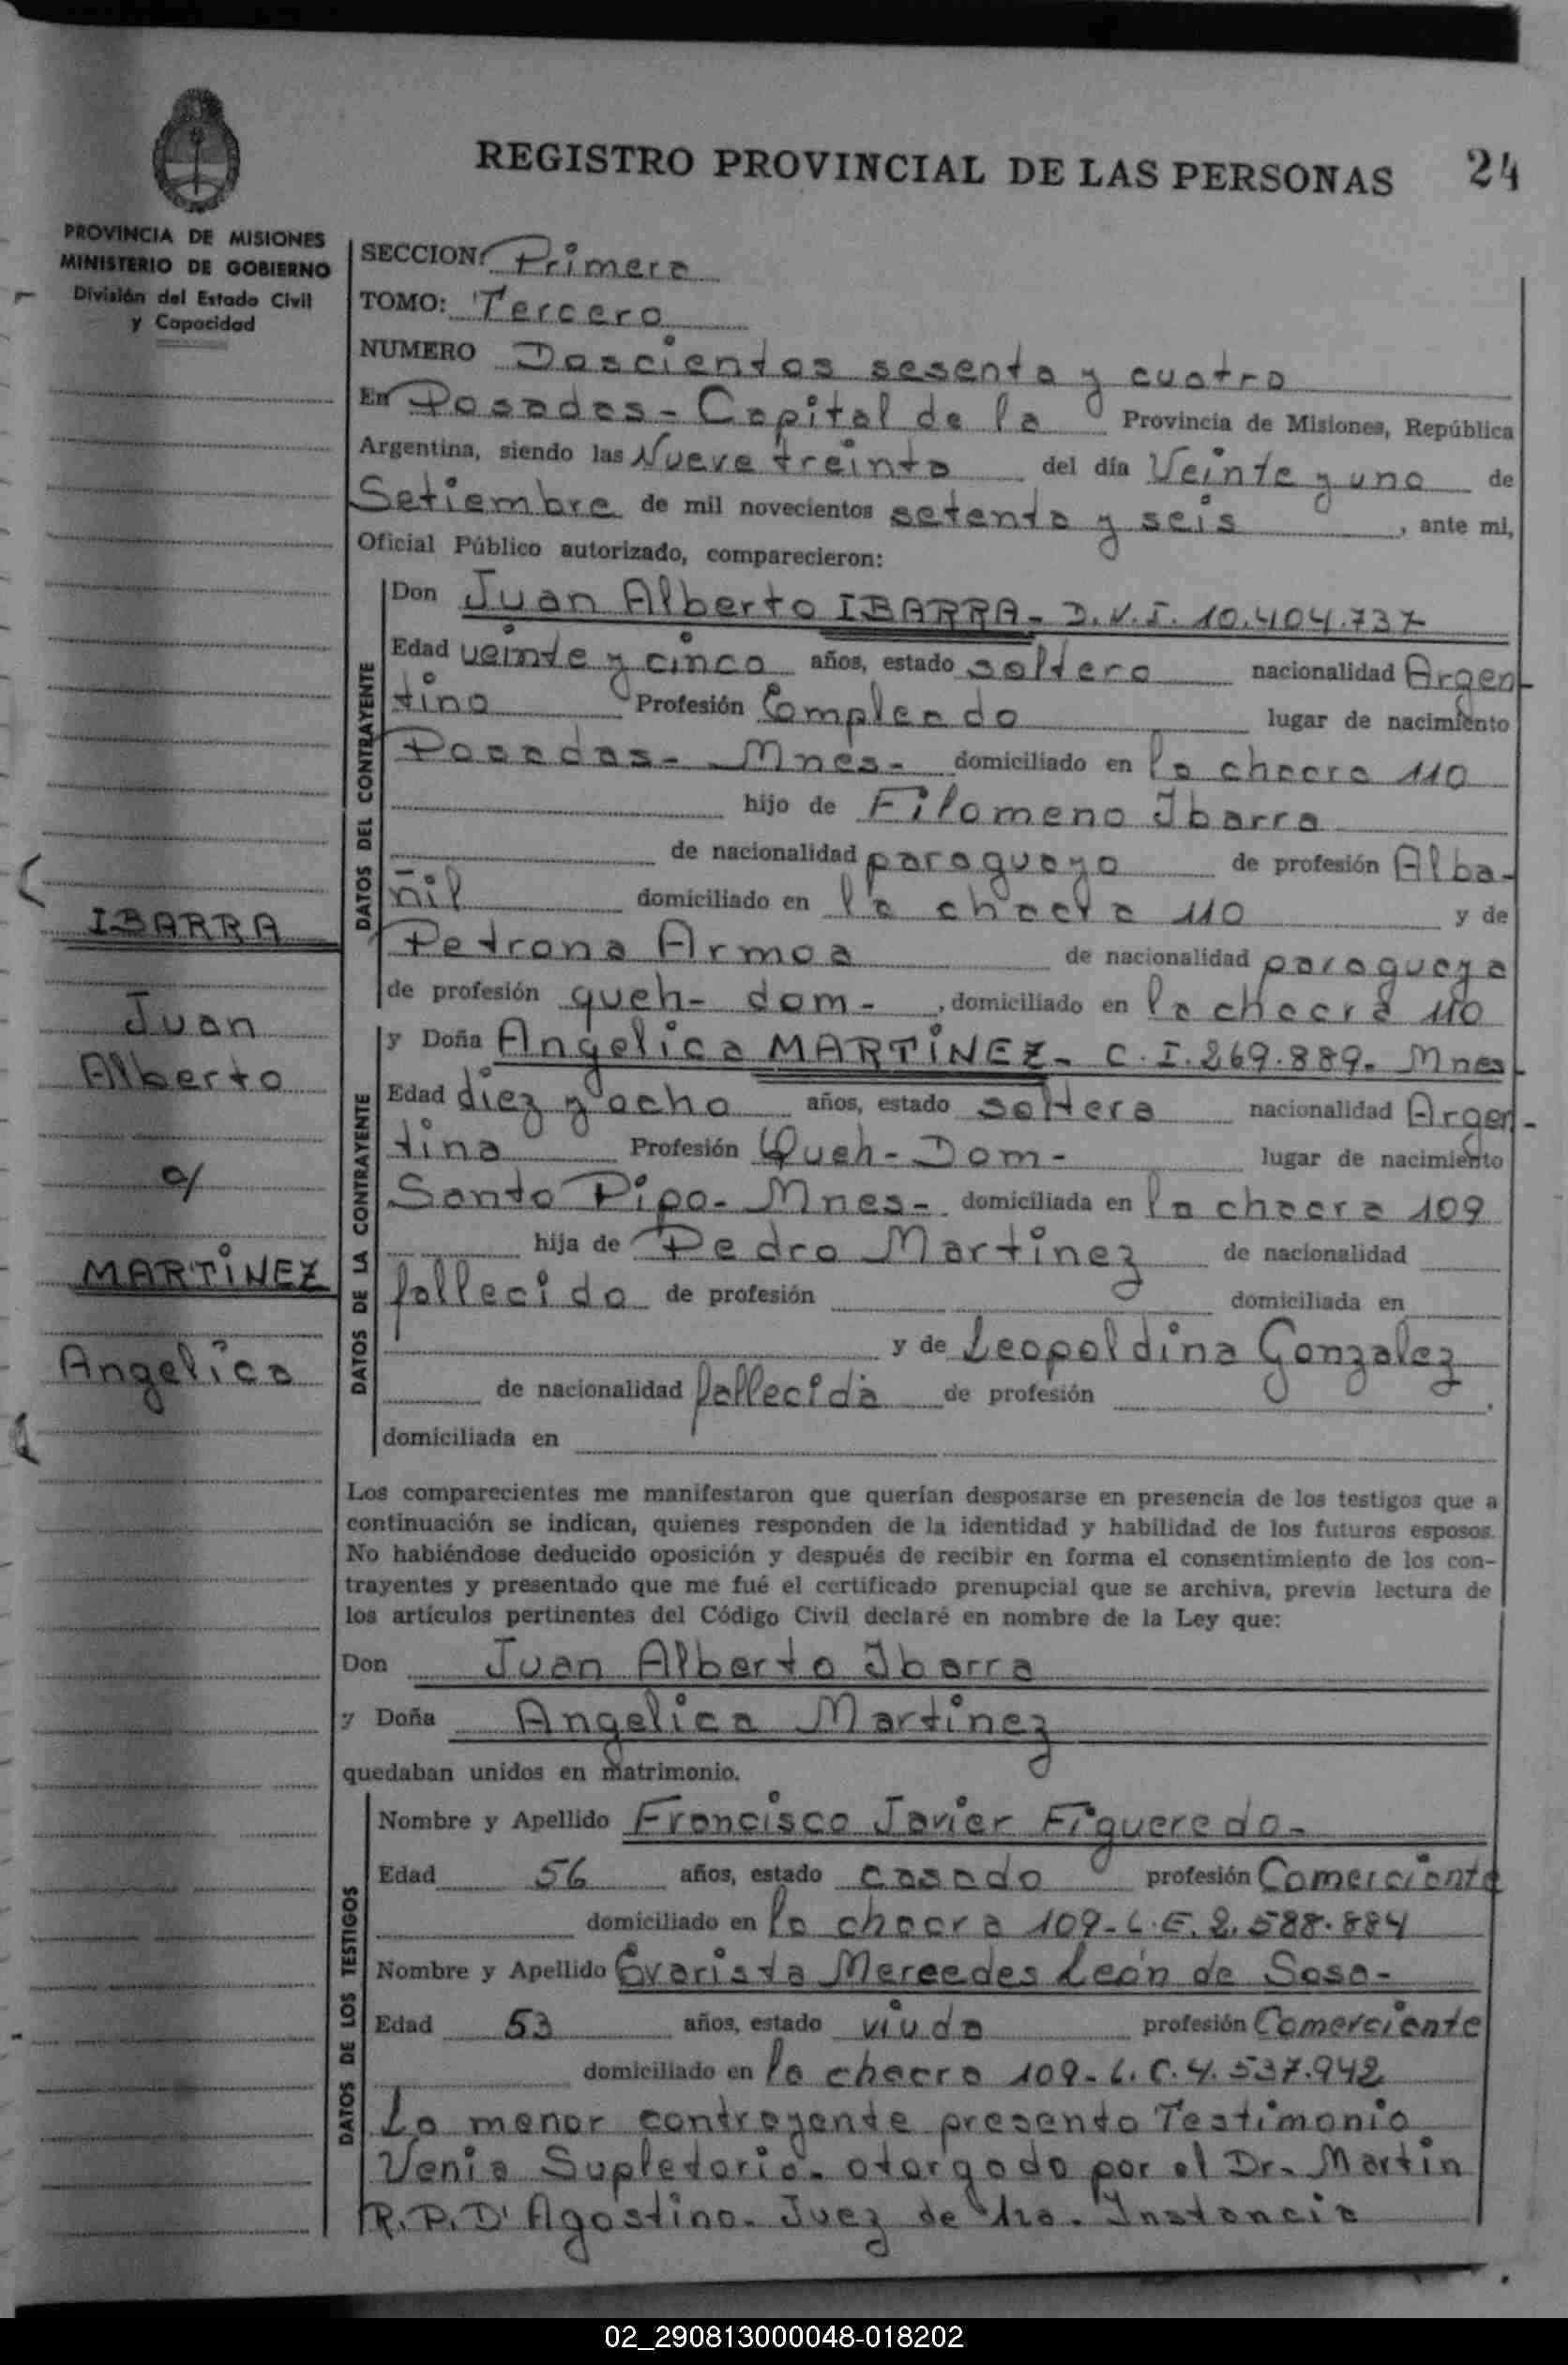 REGISTRO PROVINCIAL DE LAS PERSONAS 24
PROVINCIA DE MISIONES
MINISTERIO DE GOBIERNO
División del Estado Civil
y Capacidad
SECCION: Primera
TOMO: Tercero
NUMERO Doscientos sesenta y cuatro
En Posadas - Capital de la Provincia de Misiones, República
Argentina, siendo las Nueve treinta del día Veinte y uno de
Setiembre de mil novecientos setenta y seis, ante mi,
Oficial Público autorizado, comparecieron:
DATOS DEL CONTRAYENTE
Don Juan Alberto IBARRA - D.N.I. 10.404.737
Edad veinte y cinco años, estado soltero nacionalidad Argen-
tino Profesión Empleado lugar de nacimiento
Posadas - Mnes - domiciliado en la chacra 110
hijo de Filomeno Ibarra
de nacionalidad paraguayo de profesión Alba-
ñil domiciliado en la chacra 110 y de
Petrona Armoa de nacionalidad paraguaya
de profesión queh - dom -, domiciliado en la chacra 110
DATOS DE LA CONTRAYENTE
y Doña Angelica MARTINEZ - C.I. 269.889 - Mnes -
Edad diez y ocho años, estado soltera nacionalidad Argen-
tina Profesión Queh - Dom - lugar de nacimiento
Santo Pipo - Mnes - domiciliada en la chacra 109
hija de Pedro Martinez de nacionalidad
fallecido de profesión domiciliada en
y de Leopoldina Gonzalez
de nacionalidad fallecida de profesión
domiciliada en
IBARRA
Juan
Alberto
c/
MARTINEZ
Angelica
Los comparecientes me manifestaron que querían desposarse en presencia de los testigos que a
continuación se indican, quienes responden de la identidad y habilidad de los futuros esposos.
No habiéndose deducido oposición y después de recibir en forma el consentimiento de los con-
trayentes y presentado que me fué el certificado prenupcial que se archiva, previa lectura de
los artículos pertinentes del Código Civil declaré en nombre de la Ley que:
Don Juan Alberto Ibarra
y Doña Angelica Martinez
quedaban unidos en matrimonio.
DATOS DE LOS TESTIGOS
Nombre y Apellido Francisco Javier Figueredo -
Edad 56 años, estado casado profesión Comerciante
domiciliado en la chacra 109 - L.E. 2.588.884
Nombre y Apellido Evarista Mercedes León de Sosa -
Edad 53 años, estado viuda profesión Comerciante
domiciliado en la chacra 109 - L.C. 4.537.942
La menor contrayente presento Testimonio
Venia Supletoria - otorgado por el Dr. Martin
R.P.D'Agostino - Juez de 1ra. Instancia
02_290813000048-018202